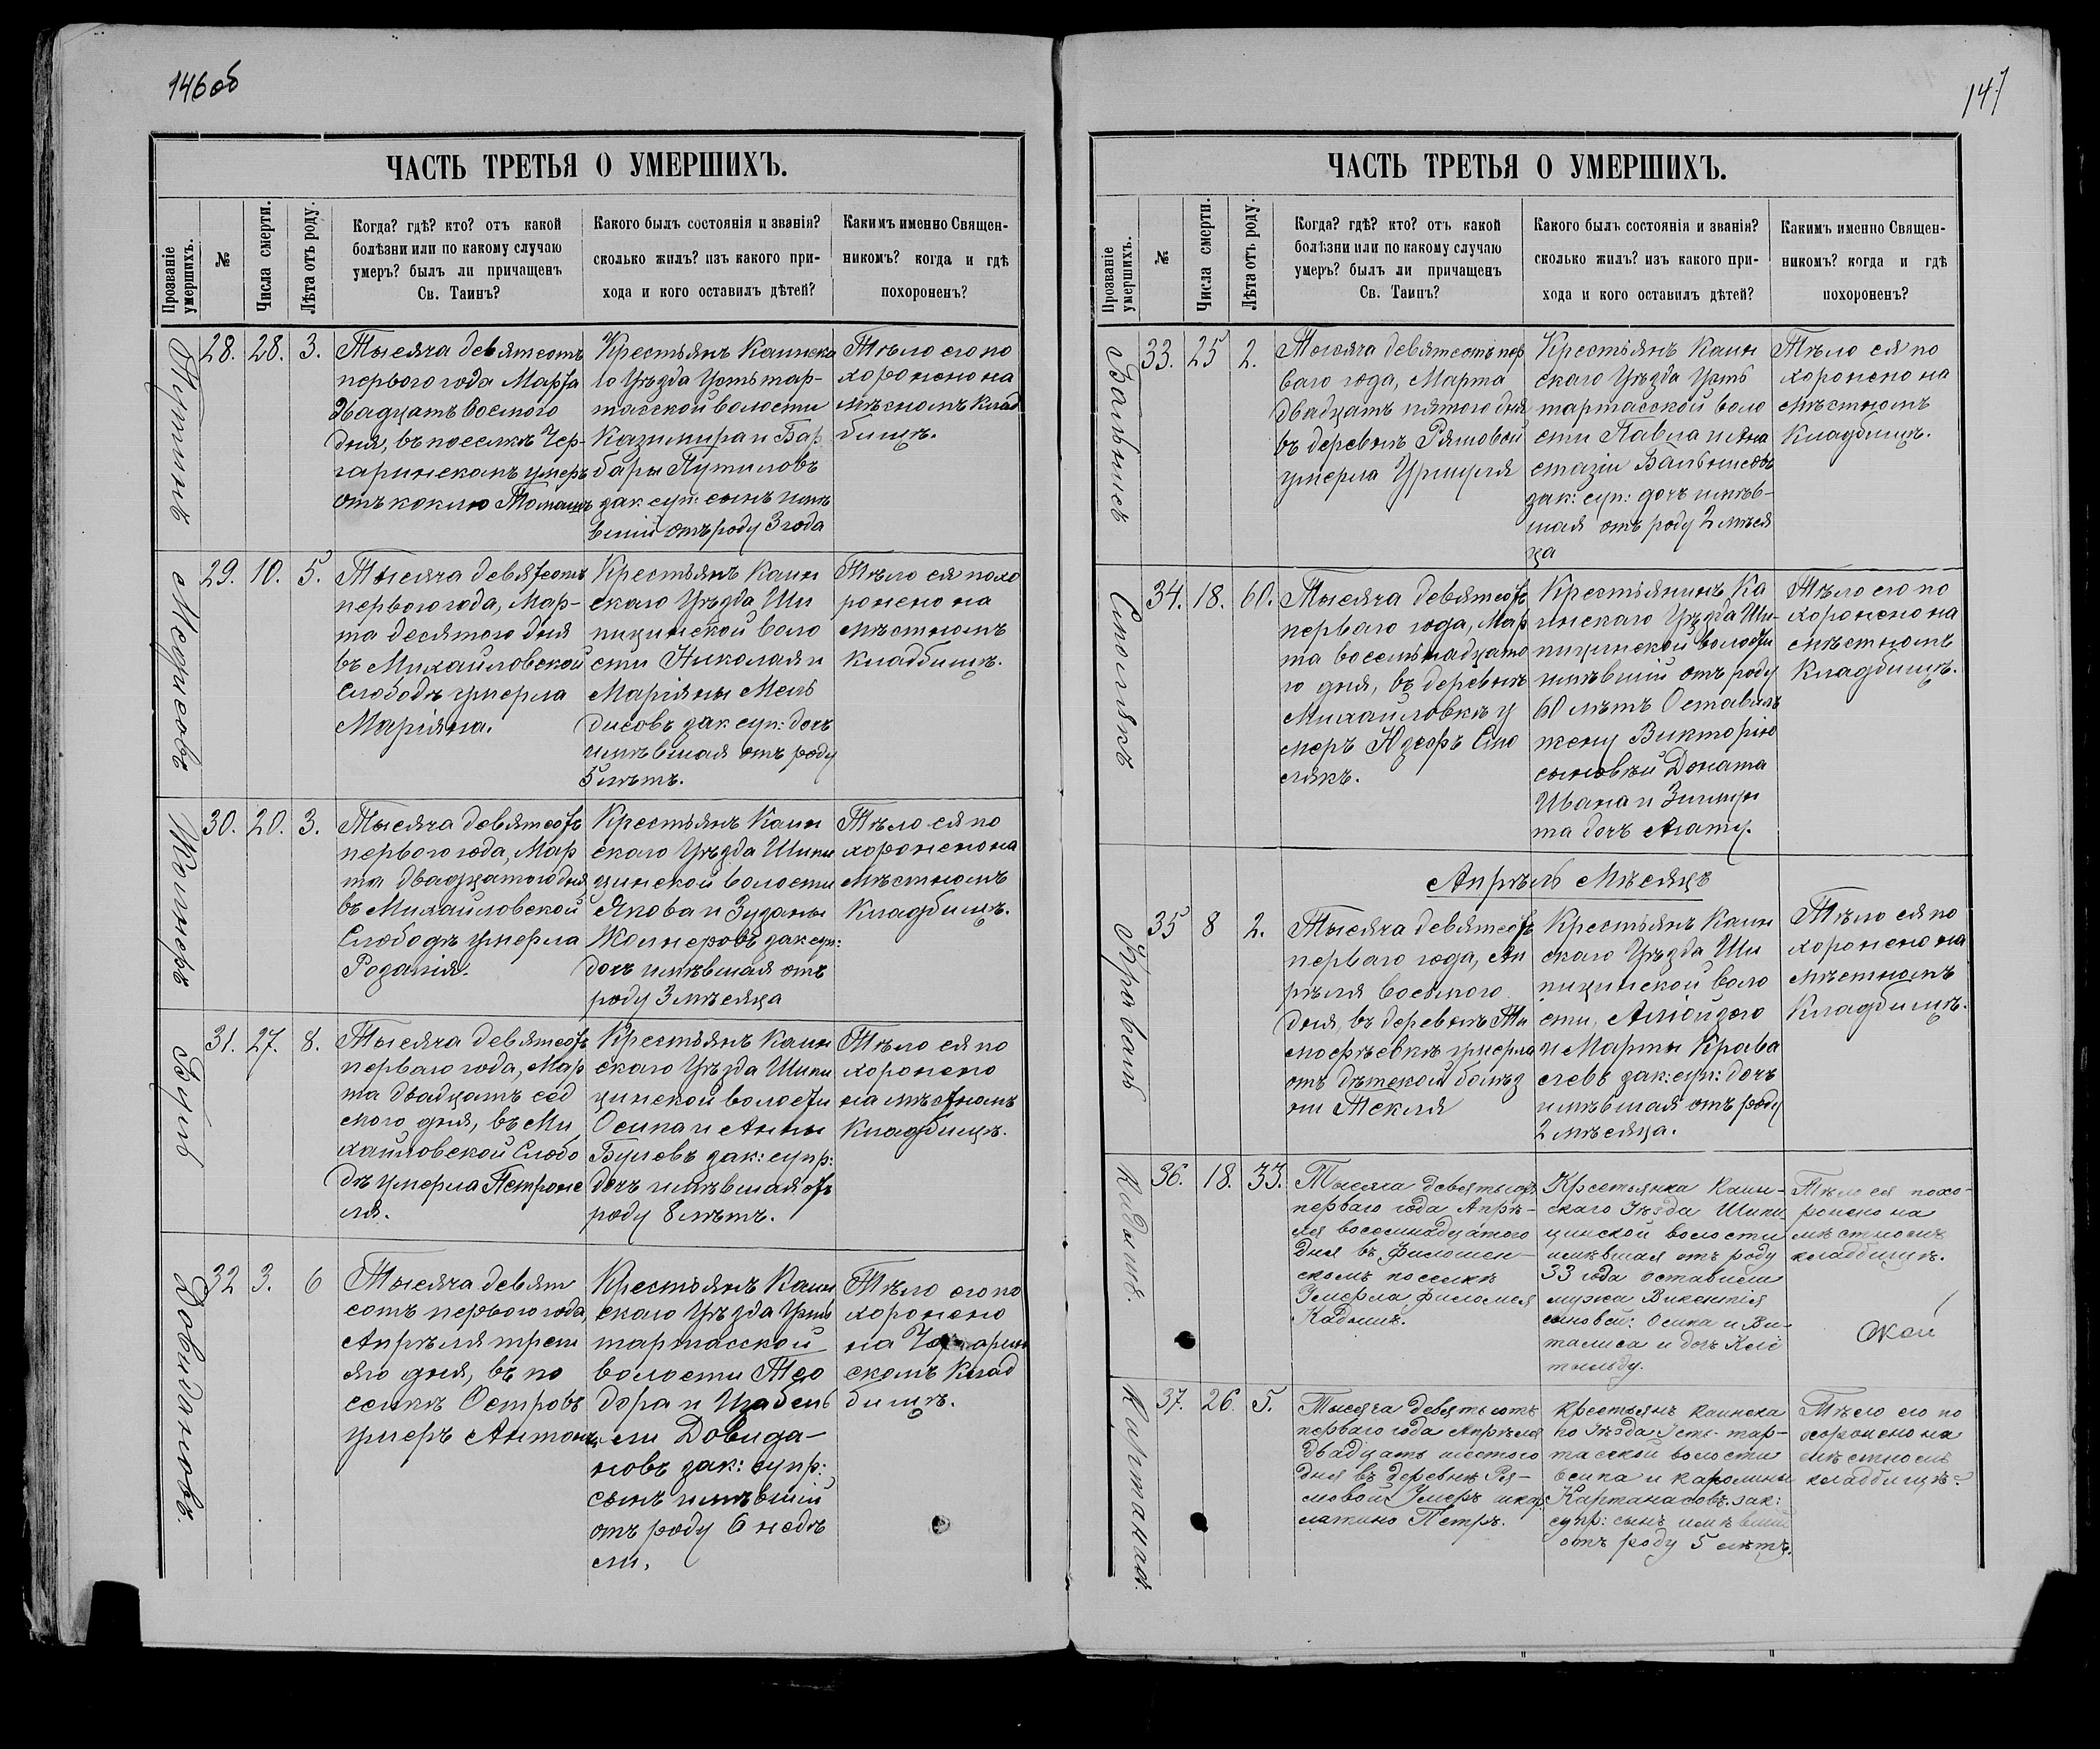 146 об
ЧАСТЬ ТРЕТЬЯ О УМЕРШИХЪ.
Прозваніе умершихъ.
№
Числа смерти.
Лѣта отъ роду.
Когда? гдѣ? кто? отъ какой
болѣзни или по какому случаю
умеръ? былъ ли причащенъ
Св. Таинъ?
Какого былъ состоянія и званія?
сколько жилъ? изъ какого при-
хода и кого оставилъ дѣтей?
Какимъ именно Священ-
никомъ? когда и гдѣ
похороненъ?
28. 28. 3.
Тысяча девятсотъ
первого года Марта
двадцать восмого
дня, въ поселкѣ Чер-
гаринскомъ умеръ
отъ коклю Томашъ
Крестьянъ Каинска
го Уѣзда Усть тар-
тасской волости
Казимира и Бар
бары Путиловъ
зак: суп: сынъ имѣ
вшій отъ роду 3 года
Тѣло его по
хоронено на
мѣсномъ клад
бищѣ.
29. 10. 5.
Тысяча девятсотъ
первого года, Мар-
та десятого дня
въ Михайловской
Слободѣ умерла
Маріяна.
Крестьянъ Каин
скаго Уѣзда Ши
пицинской воло
сти Николая и
Маріяны Мель
дисовъ зак суп: дочъ
имѣвшая отъ роду
5 лѣтъ.
Тѣло ея похо
ронено на
мѣстномъ
Кладбищѣ.
Жолнеръ
30. 20. 3.
Тысяча девятсотъ
первого года, Мар
та двадцатого дня
въ Михайловской
Слободѣ умерла
Розалія.
Крестьянъ Каин
скаго Уѣзда Шипи
цинской волости
Якова и Зузаны
Жолнеровъ зак суп:
дочъ имѣвшая отъ
роду 3 мѣсяца
Тѣло ея по
хоронено на
мѣстномъ
Кладбищѣ.
Буль
31. 27. 8.
Тысяча девятсотъ
перваго года, Мар
та двадцатъ сед
мого дня, въ Ми
хайловской Слобо
дѣ умерла Петроне
ля.
Крестьянъ Каин
скаго Уѣзда Шипи
цинской волости
Осипа и Анны
Булевъ зак: супр:
дочъ имѣвшая отъ
роду 8 лѣтъ.
Тѣло ея по
хоронено
на мѣстномъ
Кладбищѣ.
Довидановъ.
32 3. 6
Тысяча девят
сотъ первого года,
Апрѣля трет
яго дня, въ по
селкѣ Островъ
умеръ Антонъ
Крестьянъ Каин
скаго Уѣзда Усть
тартасской
волости Тео
дора и Изабель
ли Довида-
новъ зак: супр:
сынъ имѣвшій
отъ роду 6 недѣ
ли.
Тѣло его по
хоронено
скомъ клад
бищѣ.
147
ЧАСТЬ ТРЕТЬЯ О УМЕРШИХЪ.
Прозваніе умершихъ.
№
Числа смерти.
Лѣта отъ роду.
Когда? гдѣ? кто? отъ какой
болѣзни или по какому случаю
умеръ? былъ ли причащенъ
Св. Таинъ?
Какого былъ состоянія и званія?
сколько жилъ? изъ какого при-
хода и кого оставилъ дѣтей?
Какимъ именно Священ-
никомъ? когда и гдѣ
похороненъ?
33. 25 2.
Тысяча девятсотъ пер
ваго года, Марта
двадцатъ пятого дня
въ деревнѣ Рямовой
умерла Уршуля
Крестьянъ Каин
скаго Уѣзда Усть
тартасской воло
сти Павла и Ана
стазіи
зак: суп: дочъ имѣв-
шая отъ роду 2 мѣся
ца
Тѣло ея по
хоронено на
мѣстномъ
Кладбищѣ.
Смолякъ
34. 18. 60.
Тысяча девятсотъ
перваго года, Мар
та восемьнадцато
го дня, въ деревнѣ
Михайловкѣ у
меръ Юзефъ Смо
лякъ.
Крестьянинъ Ка
инскаго Уѣзда Ши-
пицинской волости
имѣвшій отъ роду
60 лѣтъ Оставилъ
жену Викторію
сыновьи Доната
Ивана и
та дочъ Агату.
Тѣло его по
хоронено на
мѣстномъ
Кладбищѣ.
Апрѣль Мѣсяцъ
Краваль
35 8 2.
Тысяча девятсотъ
перваго года, Ап
рѣля восьмого
дня, въ деревнѣ Ти
мофѣевкѣ умерла
отъ дѣтской болѣз
ни Текля
Крестьянъ Каин
скаго Уѣзда Ши
пицинской воло
сти, Алюизого
и Марты Крава
левъ зак: суп: дочъ
имѣвшая отъ роду
2 мѣсяца.
Тѣло ея по
хоронено на
мѣстномъ
Кладбищѣ.
Кадышъ.
36. 18. 33.
Тысяча девятьсотъ
перваго года Апрѣ-
ля восемнадцатого
дня въ Филомен-
скомъ поселкѣ
Умерла Филомея
Кадышъ.
Крестьянка Каин-
скаго Уѣзда Шипи
цинской волости
имѣвшая отъ роду
33 года оставили
мужа Викентія
сыновей: Осипа и Ви-
талиса и дочъ Кле
тильду.
Тѣло ея похо-
ронено на
мѣстномъ
кладбищѣ.
Картанасъ.
37. 26. 5.
Тысяча девятьсотъ
перваго года Апрѣля
двадцать шестого
дня въ деревнѣ Ря-
мовой Умеръ скар
латино Петръ.
Крестьянъ Каинска
го Уѣзда Усть-тар-
тасской волости
Осипа и Каролины
Картанасовъ. зак:
супр: сынъ имѣвшій
отъ роду 5 лѣтъ.
Тѣло его по
хоронено на
мѣстномъ
кладбищѣ.